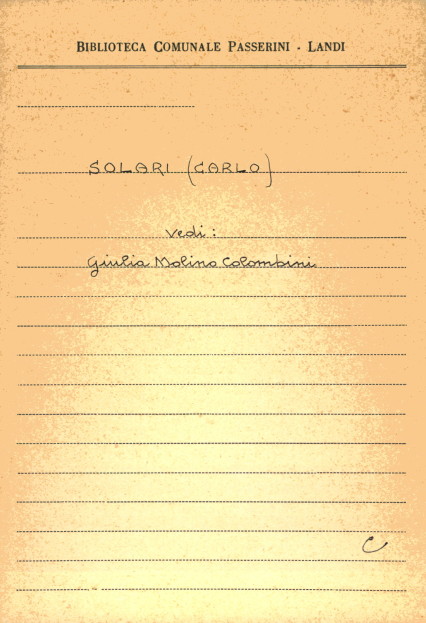 BIBLIOTECA COMUNALE PASSERINI - LANDI
SOLARI (CARLO)
vedi:
Giulia Molino Colombini
C